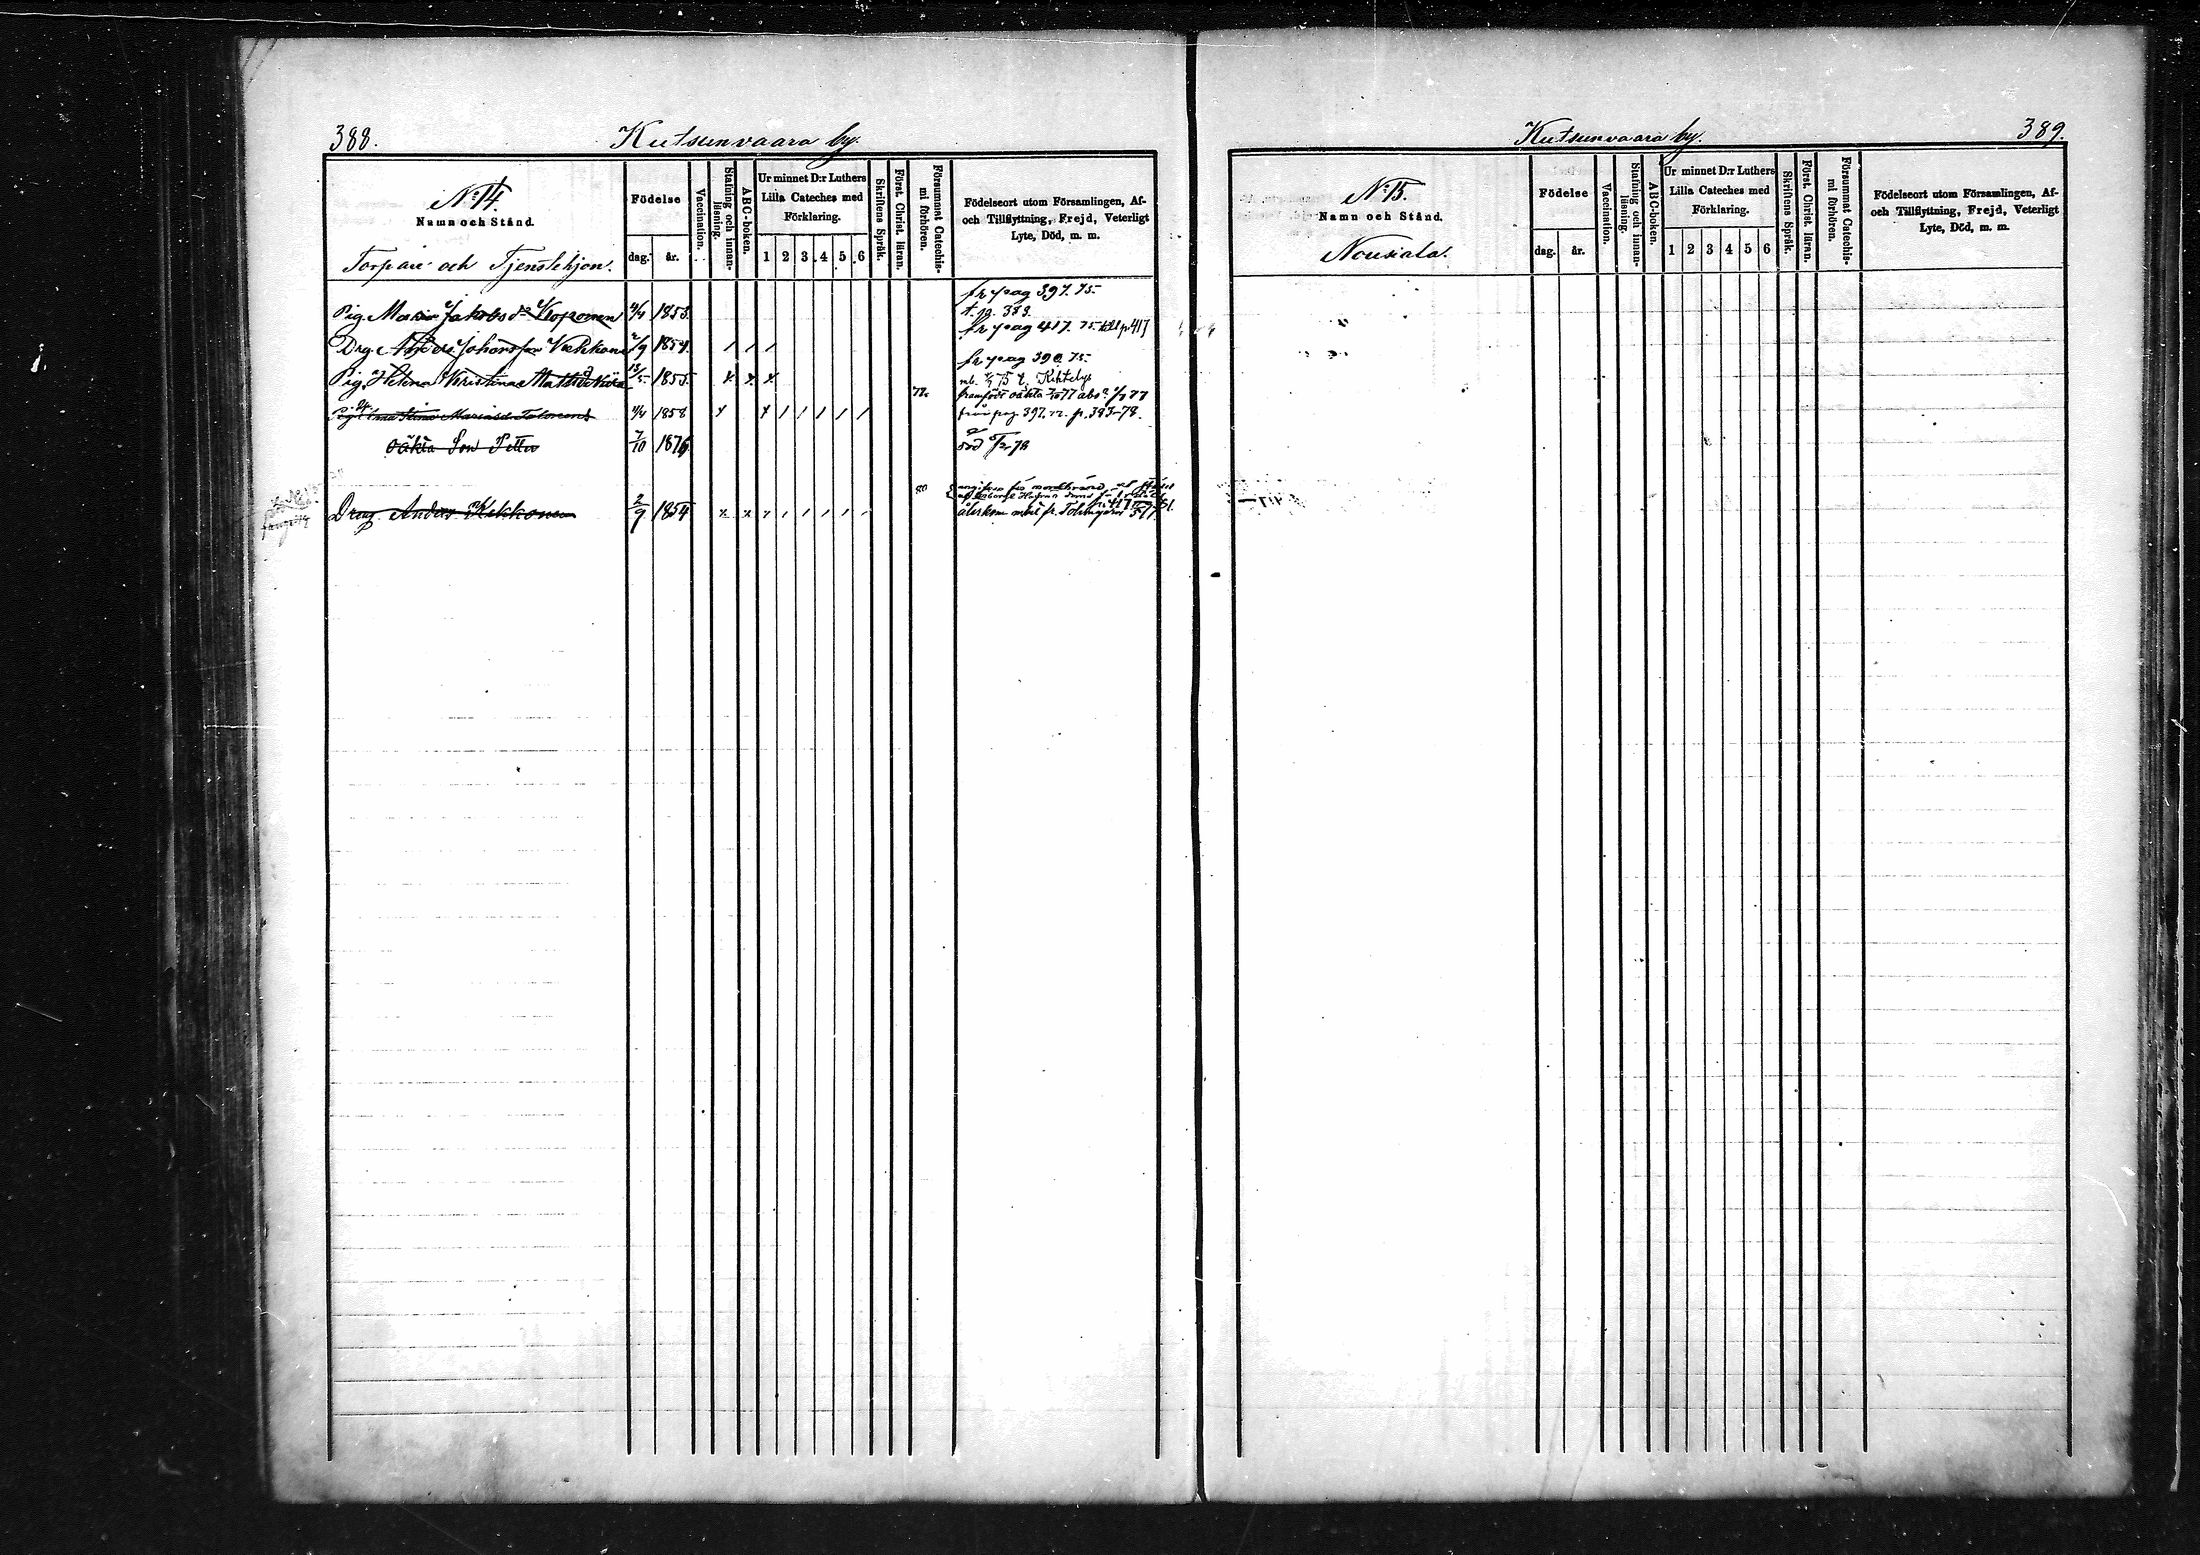 388.
Kutsunvaara by.
No 14.
Namn och Stånd.
Torpare och Tjenstehjon.
Födelse
dag. år.
Vaccination.
Stafning och innanläsning.
ABC-boken.
Ur minnet D:r Luthers
Lilla Cateches med
Förklaring.
1 2 3 4 5 6
Skriftens Språk.
Först. Christ. läran.
Försummat Catechismi förhören.
Födelseort utom Församlingen, Af-
och Tillflyttning, Frejd, Veterligt
Lyte, Död, m. m.
fr pag 397. 75
Pig. Maria Jakobsdr Kroponen 4/4 1853. t. p. 383.
fr pag 417. 75 till p 417
Drg. Anders Johansson Kekkonen 2/9 1854.
fr pag 390 75
Pig. Helena Kristina Mattsdr 13/5 1855.
framfödt oäkta
Pig. Anna Stina Mariasd 4/4 1858 från pag. 397. 77. p. 383-78.
oäkta Son Petter 7/10 1876 död
80
Dreng Anders Kekkonen 2/9 1854
Kutsunvaara by.
389.
No 15.
Namn och Stånd.
Nousiala.
Födelse
dag. år.
Vaccination.
Stafning och innanläsning.
ABC-boken.
Ur minnet D:r Luthers
Lilla Cateches med
Förklaring.
1 2 3 4 5 6
Skriftens Språk.
Först. Christ. läran.
Försummat Catechismi förhören.
Födelseort utom Församlingen, Af-
och Tillflyttning, Frejd, Veterligt
Lyte, Död, m. m.